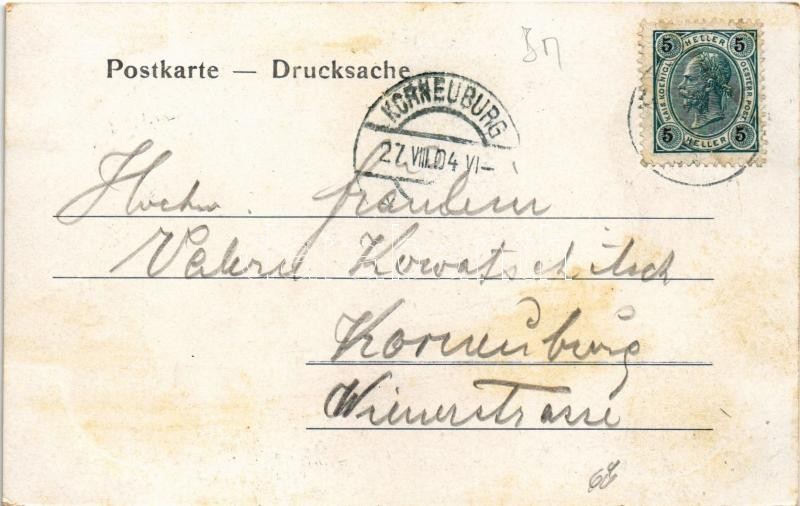 Postkarte — Drucksache
5 HELLER 5
KAIS. KOENIGL. OESTERR. POST
5 HELLER 5
KORNEUBURG
27. VIII. 04 VI–
Hochw. Fräulein
Valerie Kowatschitsch
Korneuburg
Wienerstrasse